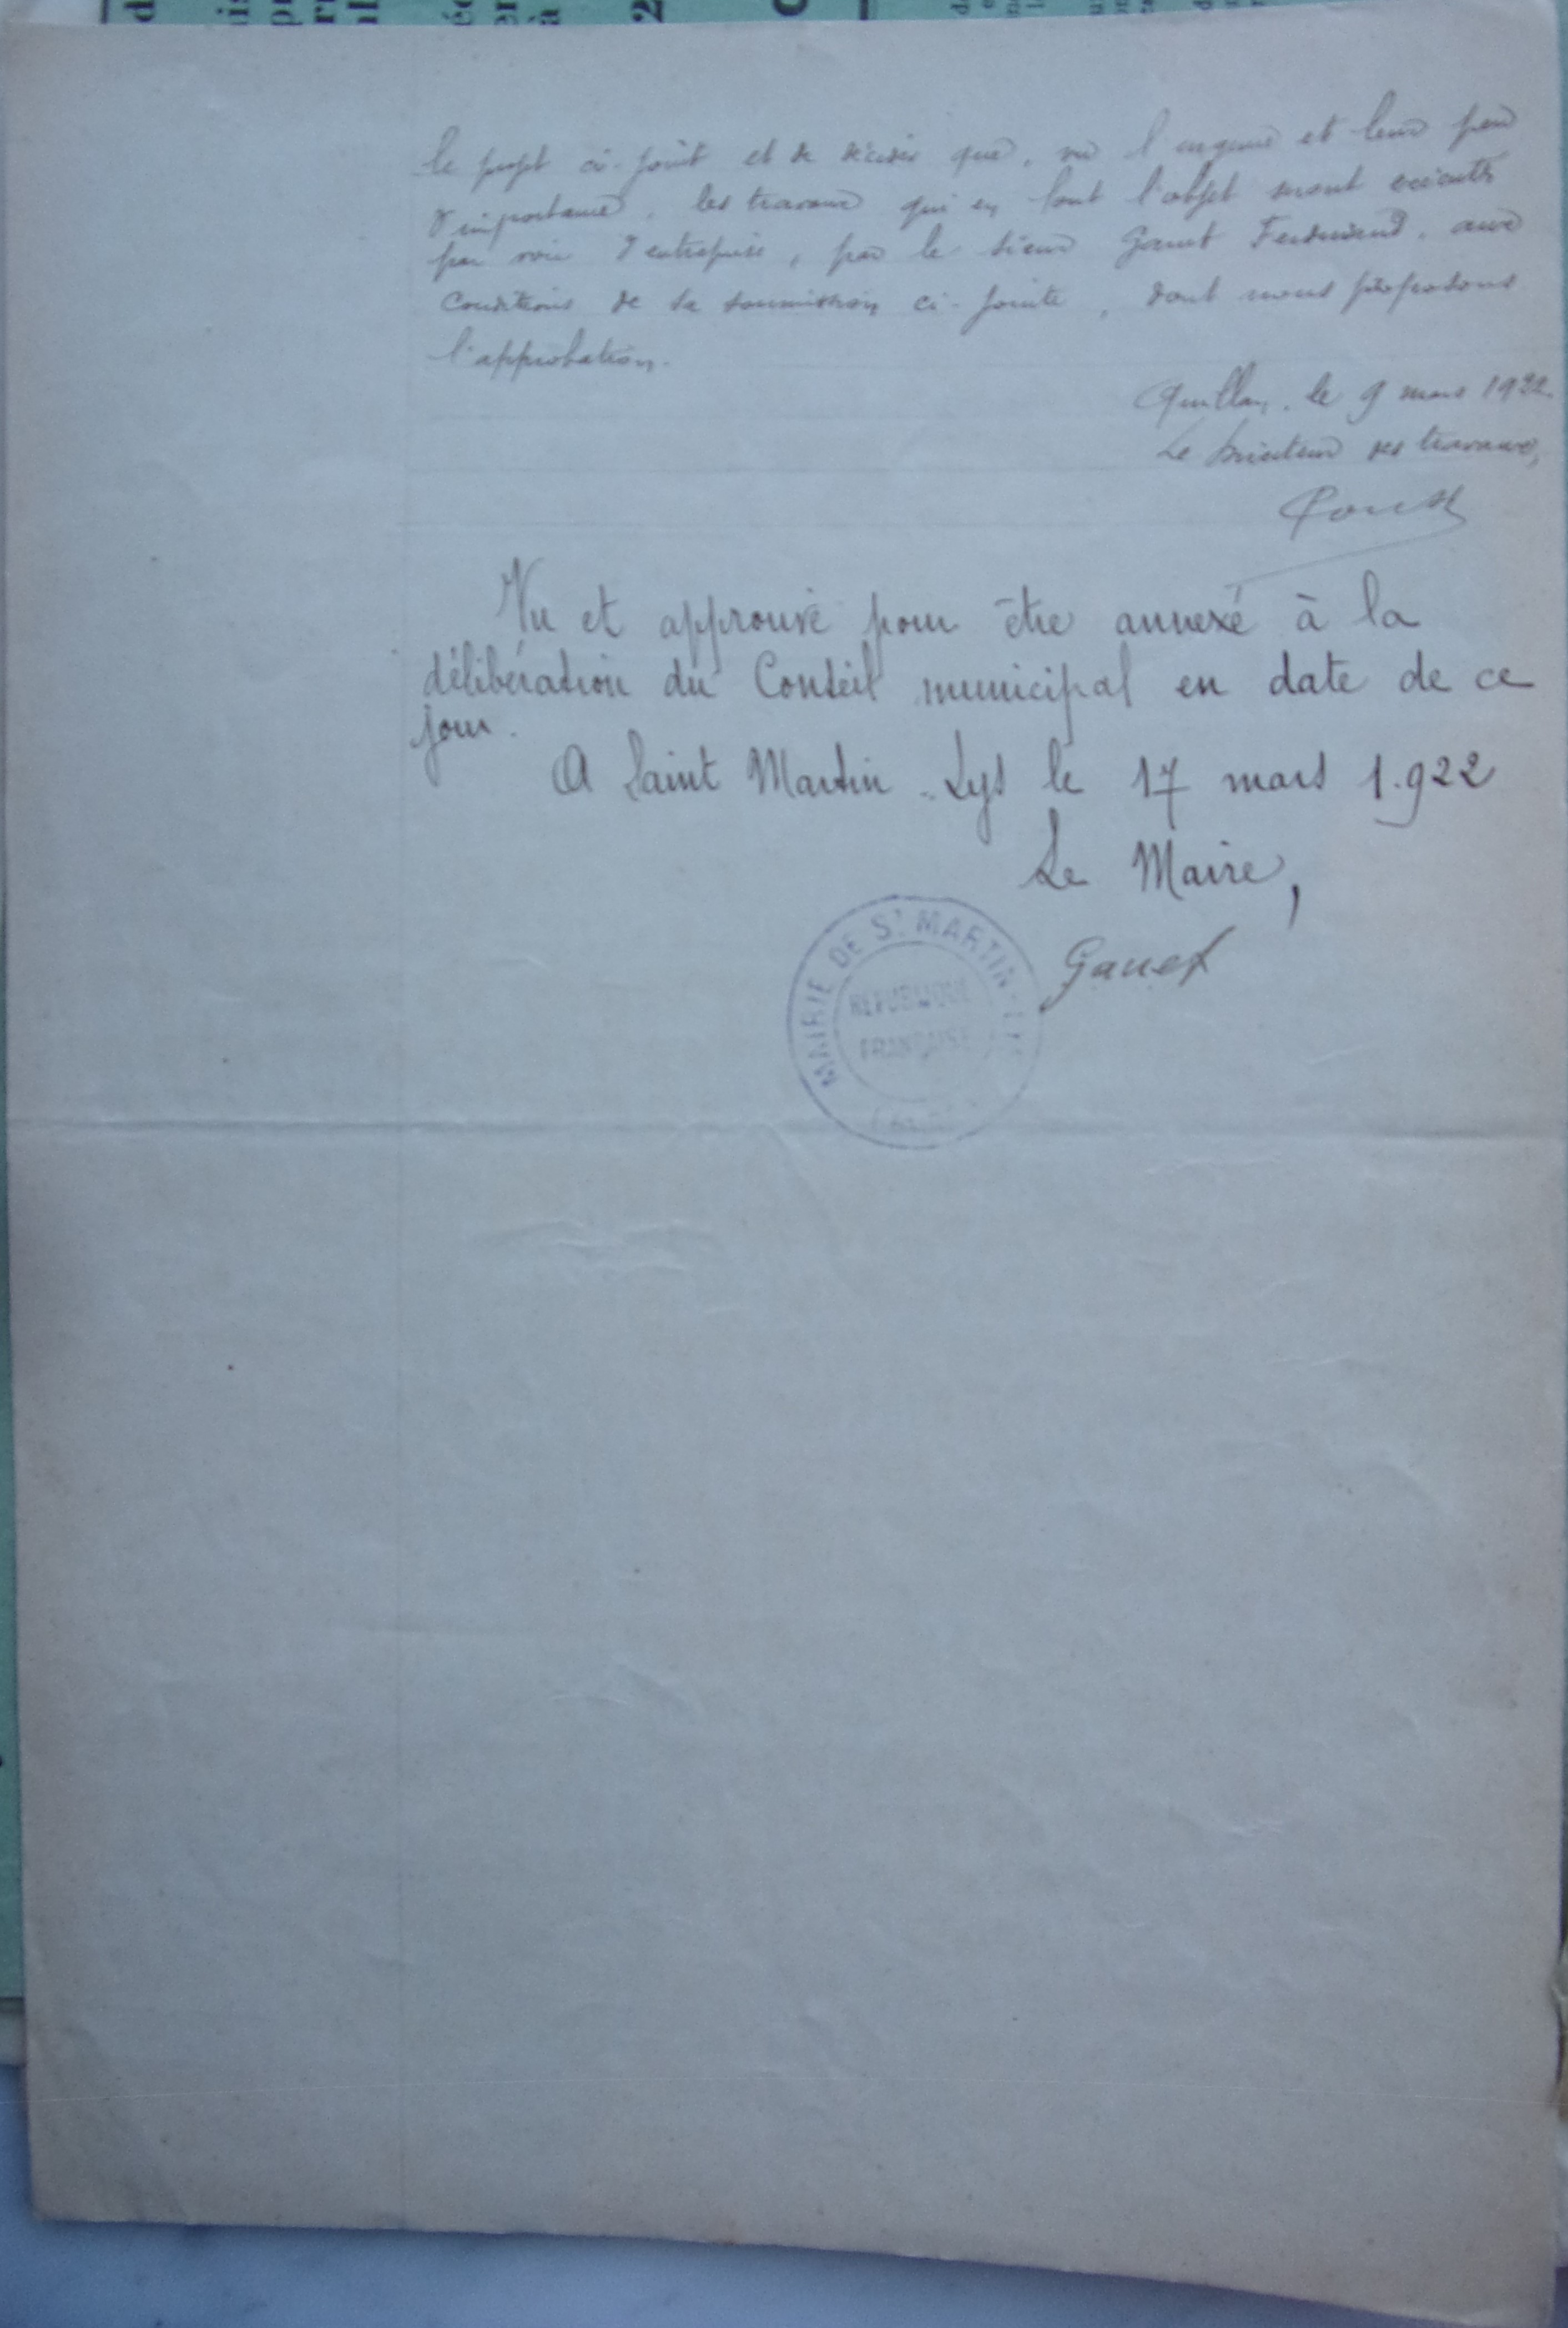 le projet ci-joint et de décider que, vu l'urgence et leur peu
d'importance, les travaux qui en font l'objet seront exécutés
par voie d'entreprise, par le sieur Ganet Ferdinand, aux
conditions de sa soumission ci-jointe, dont nous proposons
l'approbation.
Quillan, le 9 mars 1922.
Le Directeur des travaux,
Vu et approuvé pour être annexé à la
délibération du Conseil municipal en date de ce
jour.
A Saint Martin-Lys le 17 mars 1.922
Le Maire,
Ganet
MAIRIE DE St MARTIN-LYS
REPUBLIQUE
FRANÇAISE